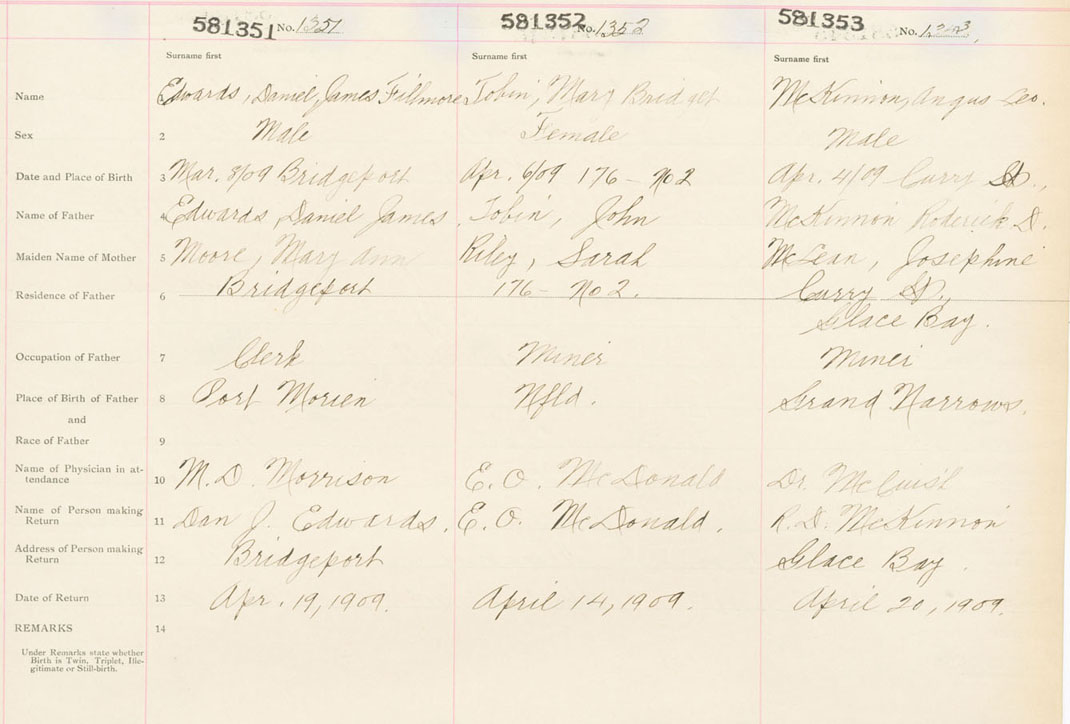 581351 No. 1351 581352 No. 1352 581353 No. 1353
Surname first Surname first Surname first
Name Edwards, Daniel, James Fillmore Tobin, Mary Bridget McKinnon, Angus Leo.
Sex 2 Male Female Male
Date and Place of Birth 3 Mar. 8/09 Bridgeport Apr. 6/09 176 - No 2 Apr. 4/09 Curry St.,
Name of Father 4 Edwards, Daniel James. Tobin, John McKinnon Roderick D.
Maiden Name of Mother 5 Moore, Mary Ann Riley, Sarah McLean, Josephine
Residence of Father 6 Bridgeport 176 - No 2. Curry St.,
Glace Bay.
Occupation of Father 7 Clerk Miner Miner
Place of Birth of Father 8 Port Morien Nfld. Grand Narrows.
and
Race of Father 9
Name of Physician in at-
tendance 10 M. D. Morrison E. O. McDonald Dr. McCuish
Name of Person making
Return 11 Dan J. Edwards. E. O. McDonald. R. D. McKinnon
Address of Person making
Return 12 Bridgeport Glace Bay.
Date of Return 13 Apr. 19, 1909. April 14, 1909. April 20, 1909.
REMARKS 14
Under Remarks state whether
Birth is Twin, Triplet, Ille-
gitimate or Still-birth.